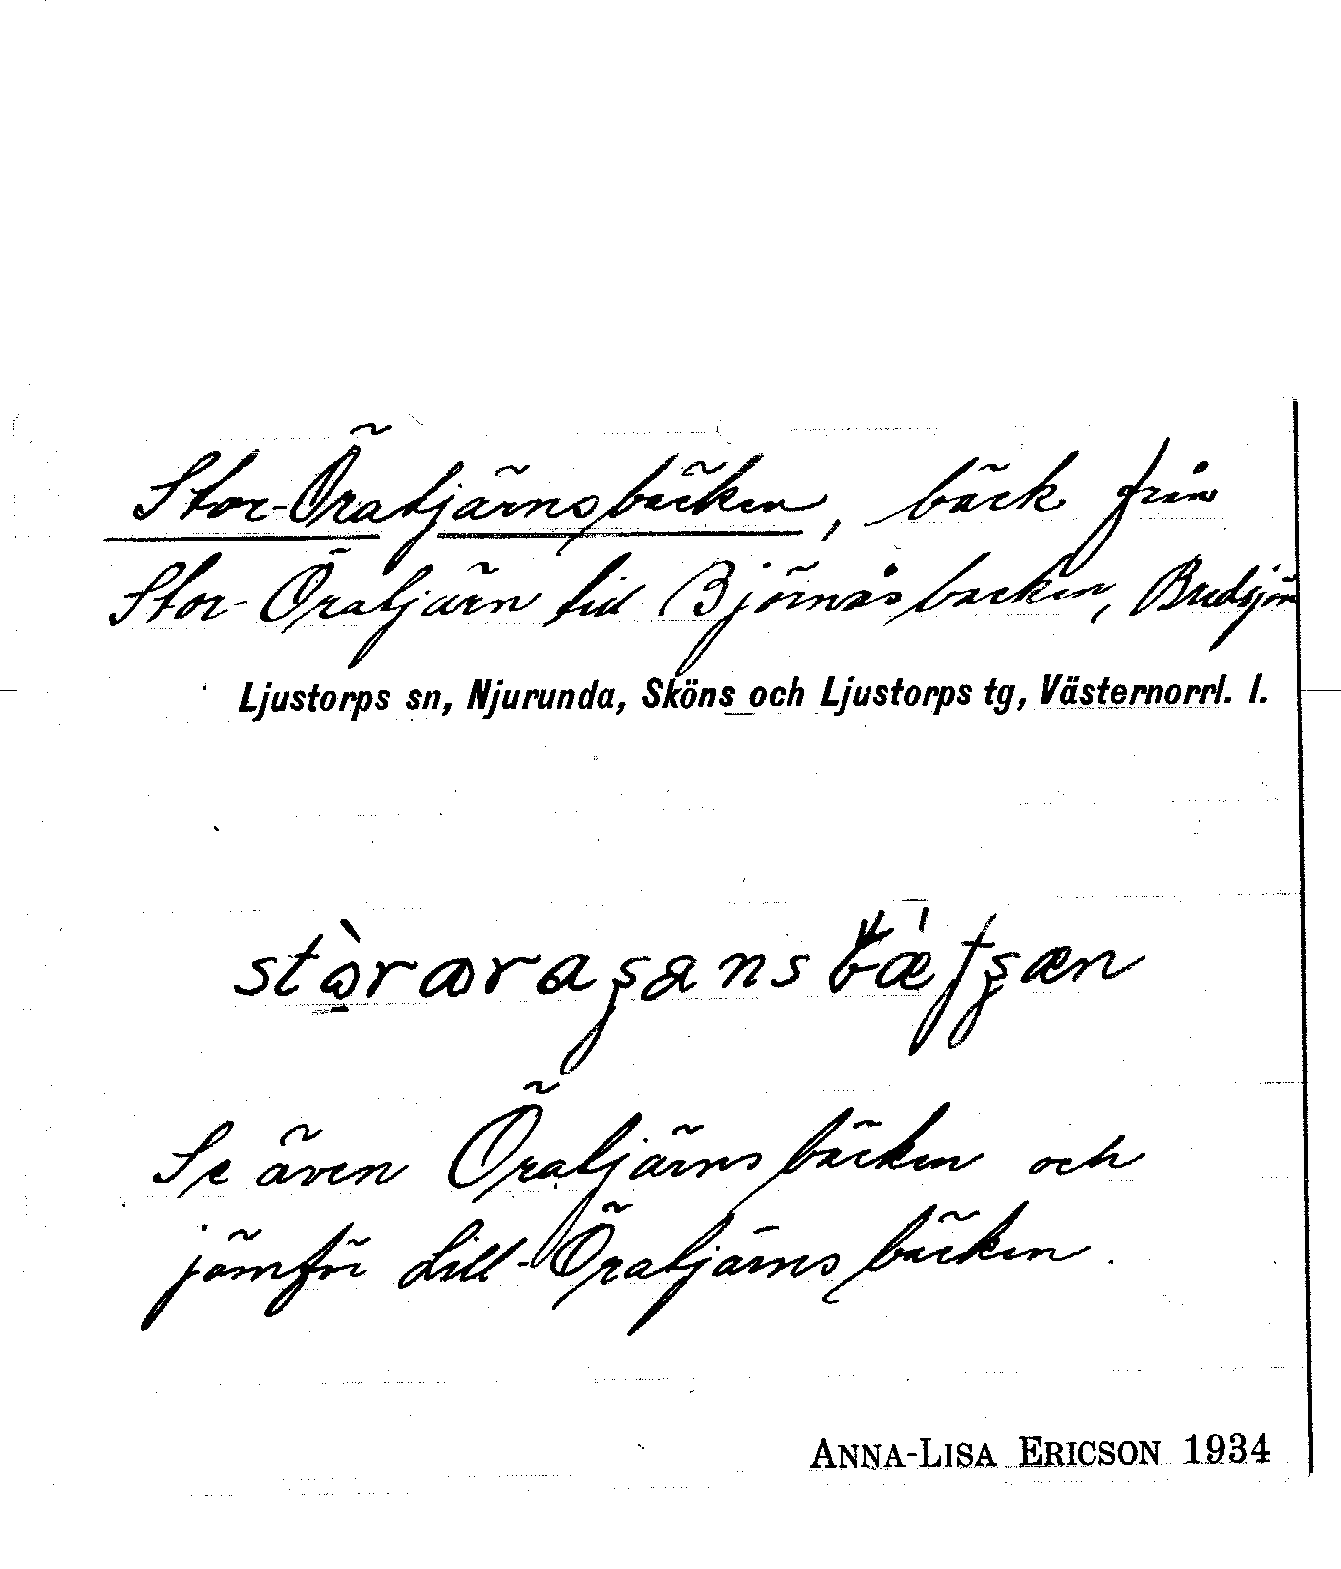 Stor-Öratjärnsbäcken, bäck från
Stor-Öratjärn till Björnåsbäcken, Bredsjön
Ljustorps sn, Njurunda, Sköns och Ljustorps tg, Västernorrl. l.
Se även Öratjärnsbäcken och
jämför Lill-Öratjärnsbäcken.
ANNA-LISA ERICSON 1934